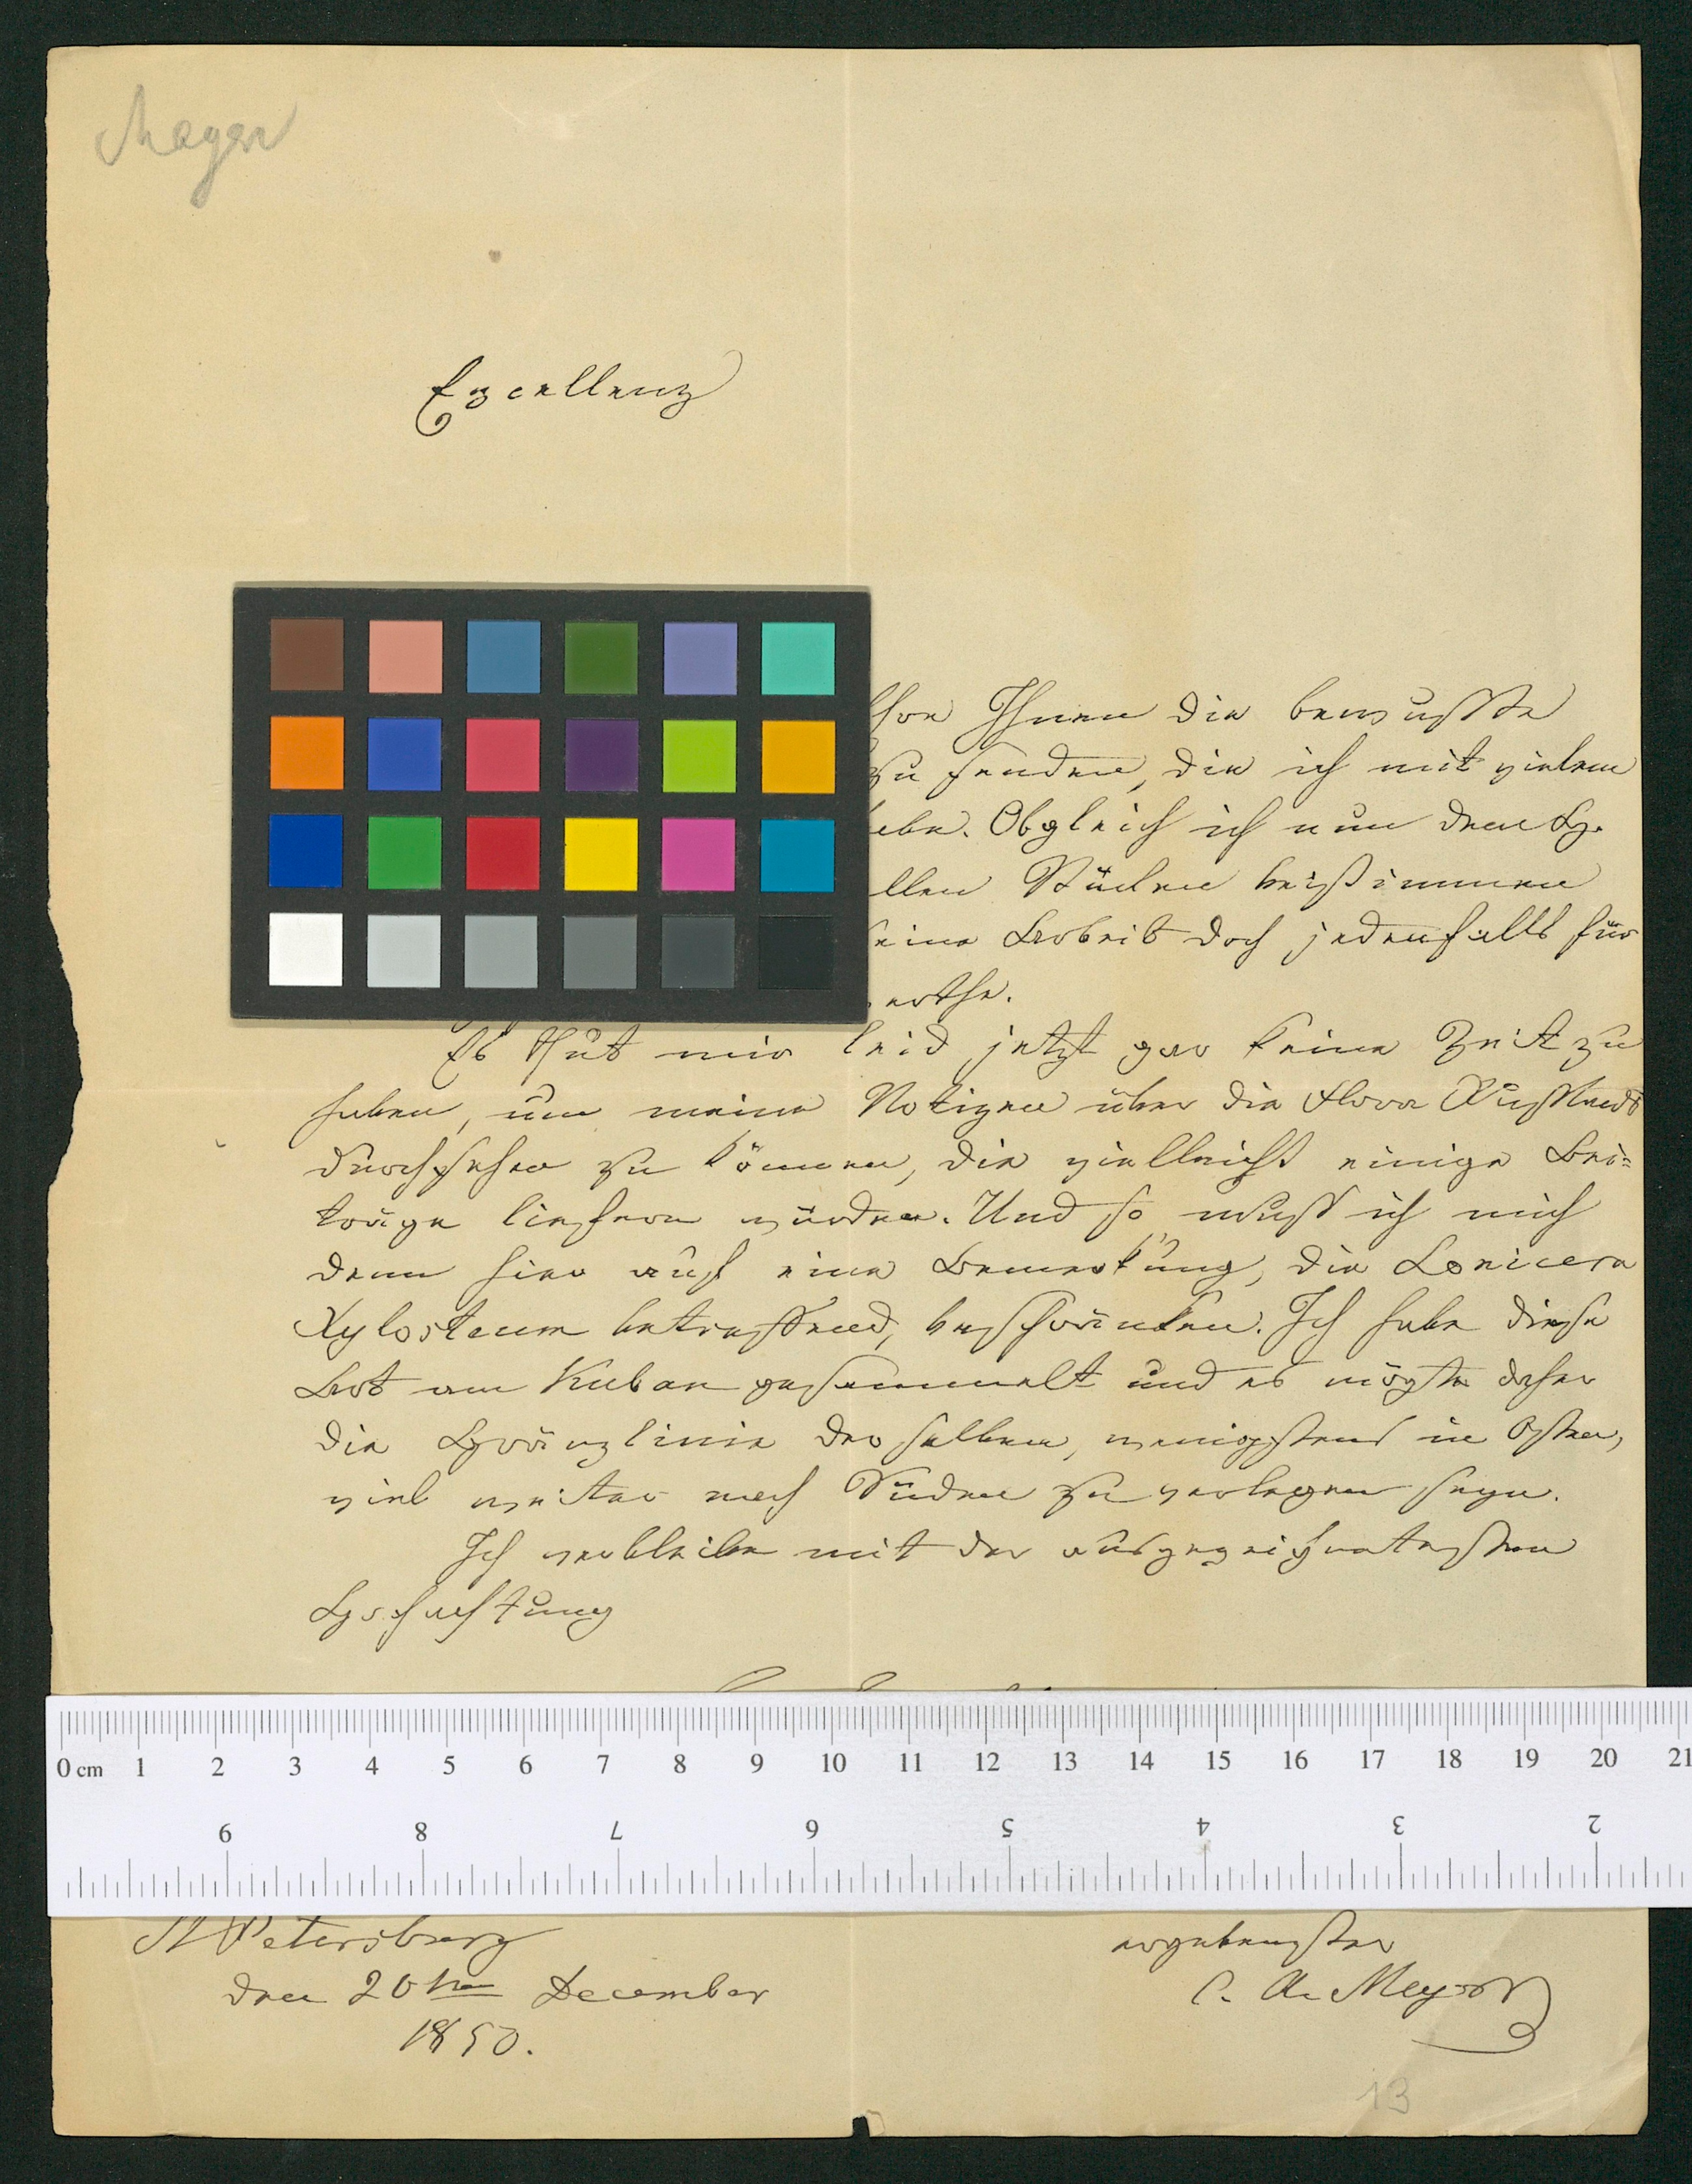 Meyer
Excellenz
Ihnen die bewusste
zu senden, die ich mit vielem
Obgleich ich nun dem
Stücken beistimmen
Arbeit doch jedenfalls für
Es thut mir leid jetzt gar keine Zeit zu
haben, um meine Notizen über die Flora Russlands
durchsehen zu können, die vielleicht einige Bei-
träge liefern würden. Und so muss ich mich
denn hier auf eine Bemerkung, die Lonicera
Xylosteum betreffend, beschränken. Ich habe diese
Art am Kuban gesammelt und es mögte daher
die Gränzlinie derselben, wenigstens im Osten,
viel weiter nach Süden zu verlegen seyn.
Ich verbleibe mit der ausgezeichnetesten
Hochachtung
0 cm 1 2 3 4 5 6 7 8 9 10 11 12 13 14 15 16 17 18 19 20 21
9 8 7 6 5 4 3 2
St Petersburg
den 20ten December
1850.
ergebenster
C. A. Meyer
13